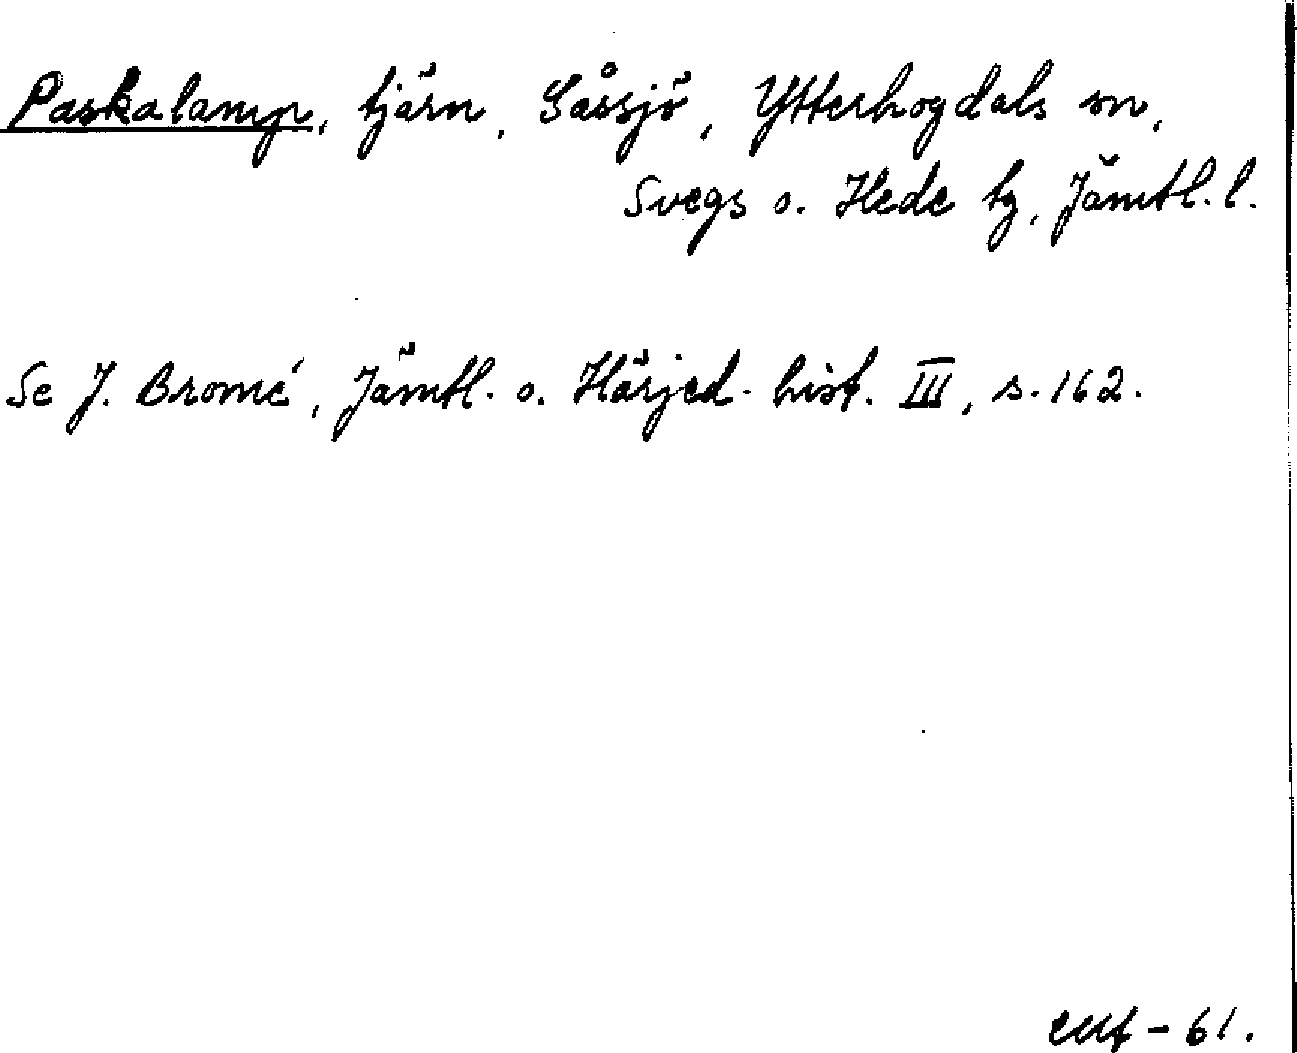 Paskalamp, tjärn, Såssjö, Ytterhogdals sn,
Svegs o. Hede tg, Jämtl. l.
Se J. Bromé, Jämtl. o. Härjed. hist. III, s. 162.
- 61.